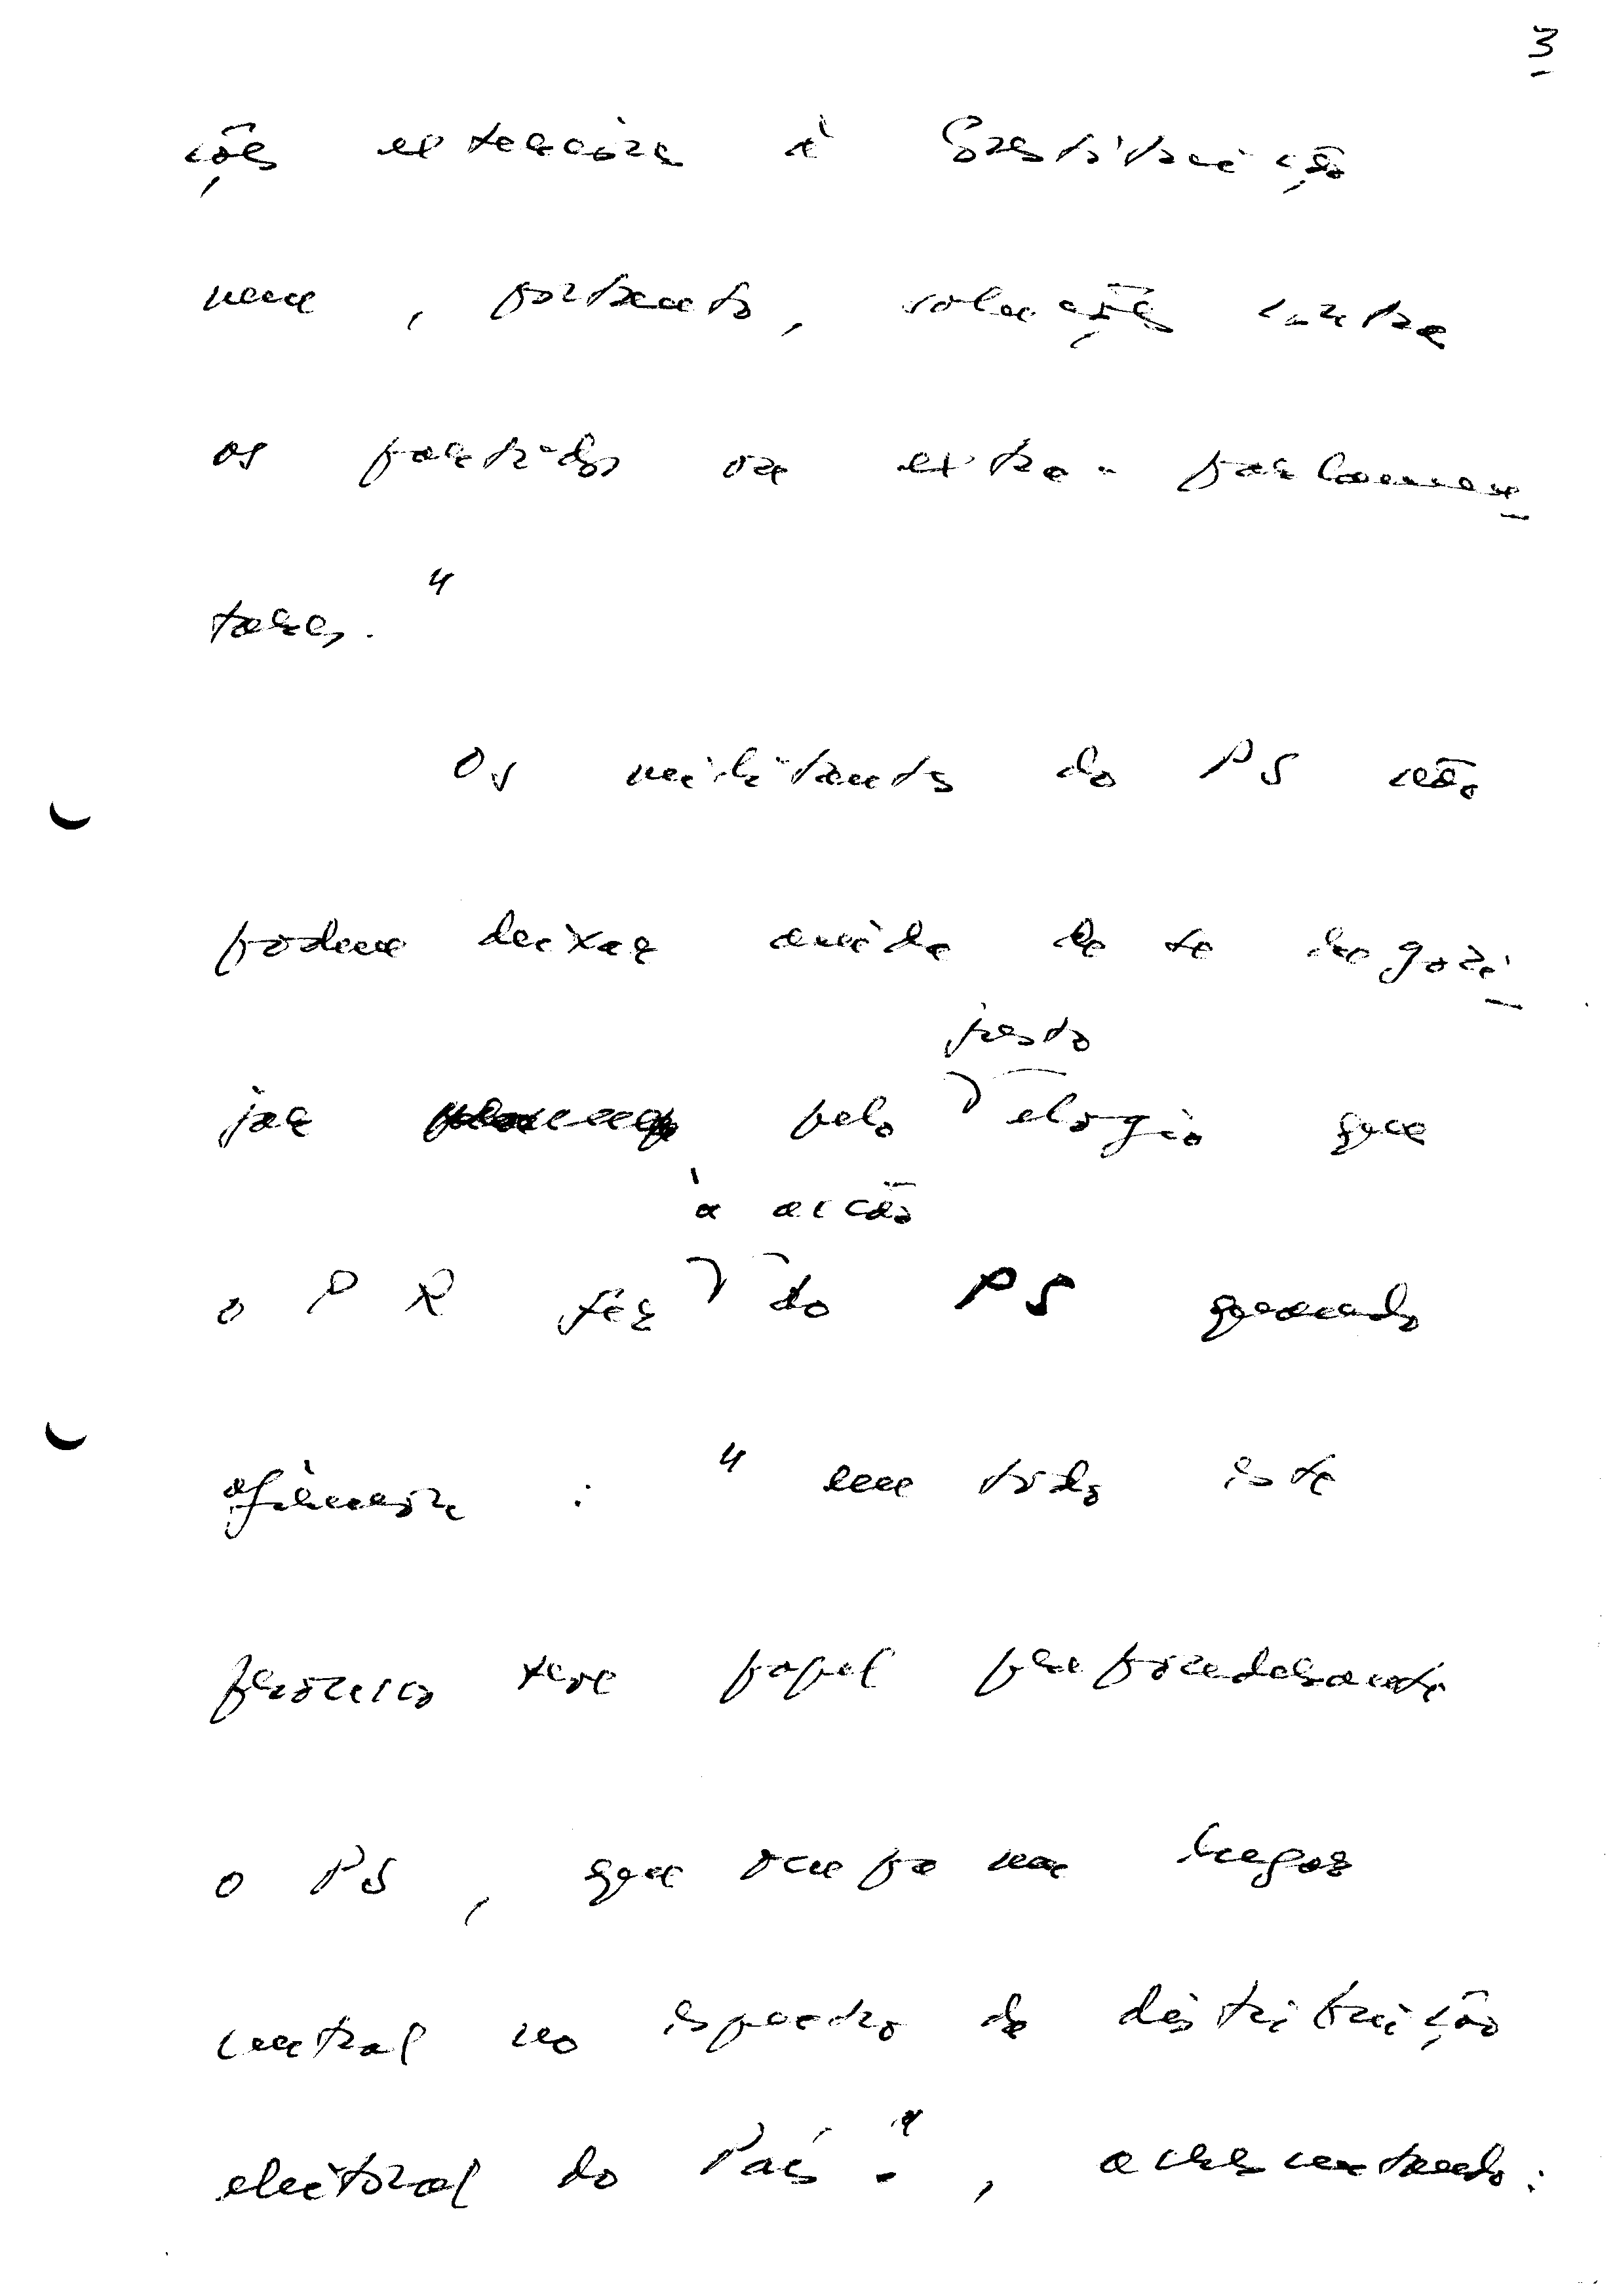 3
ções exteriores à Constituição
nem, portanto, soluções contra
os partidos ou extra-parlamen
tares."
Os militantes do PS não
podem deixar ainda de se regozi
jar pelo justo elogio que
o PR fez à acção do PS quando
afirmou : " em todo este
processo teve papel preponderante
o PS, que ocupa um lugar
central no espectro da distribuição
eleitoral do País.", acrescentando: